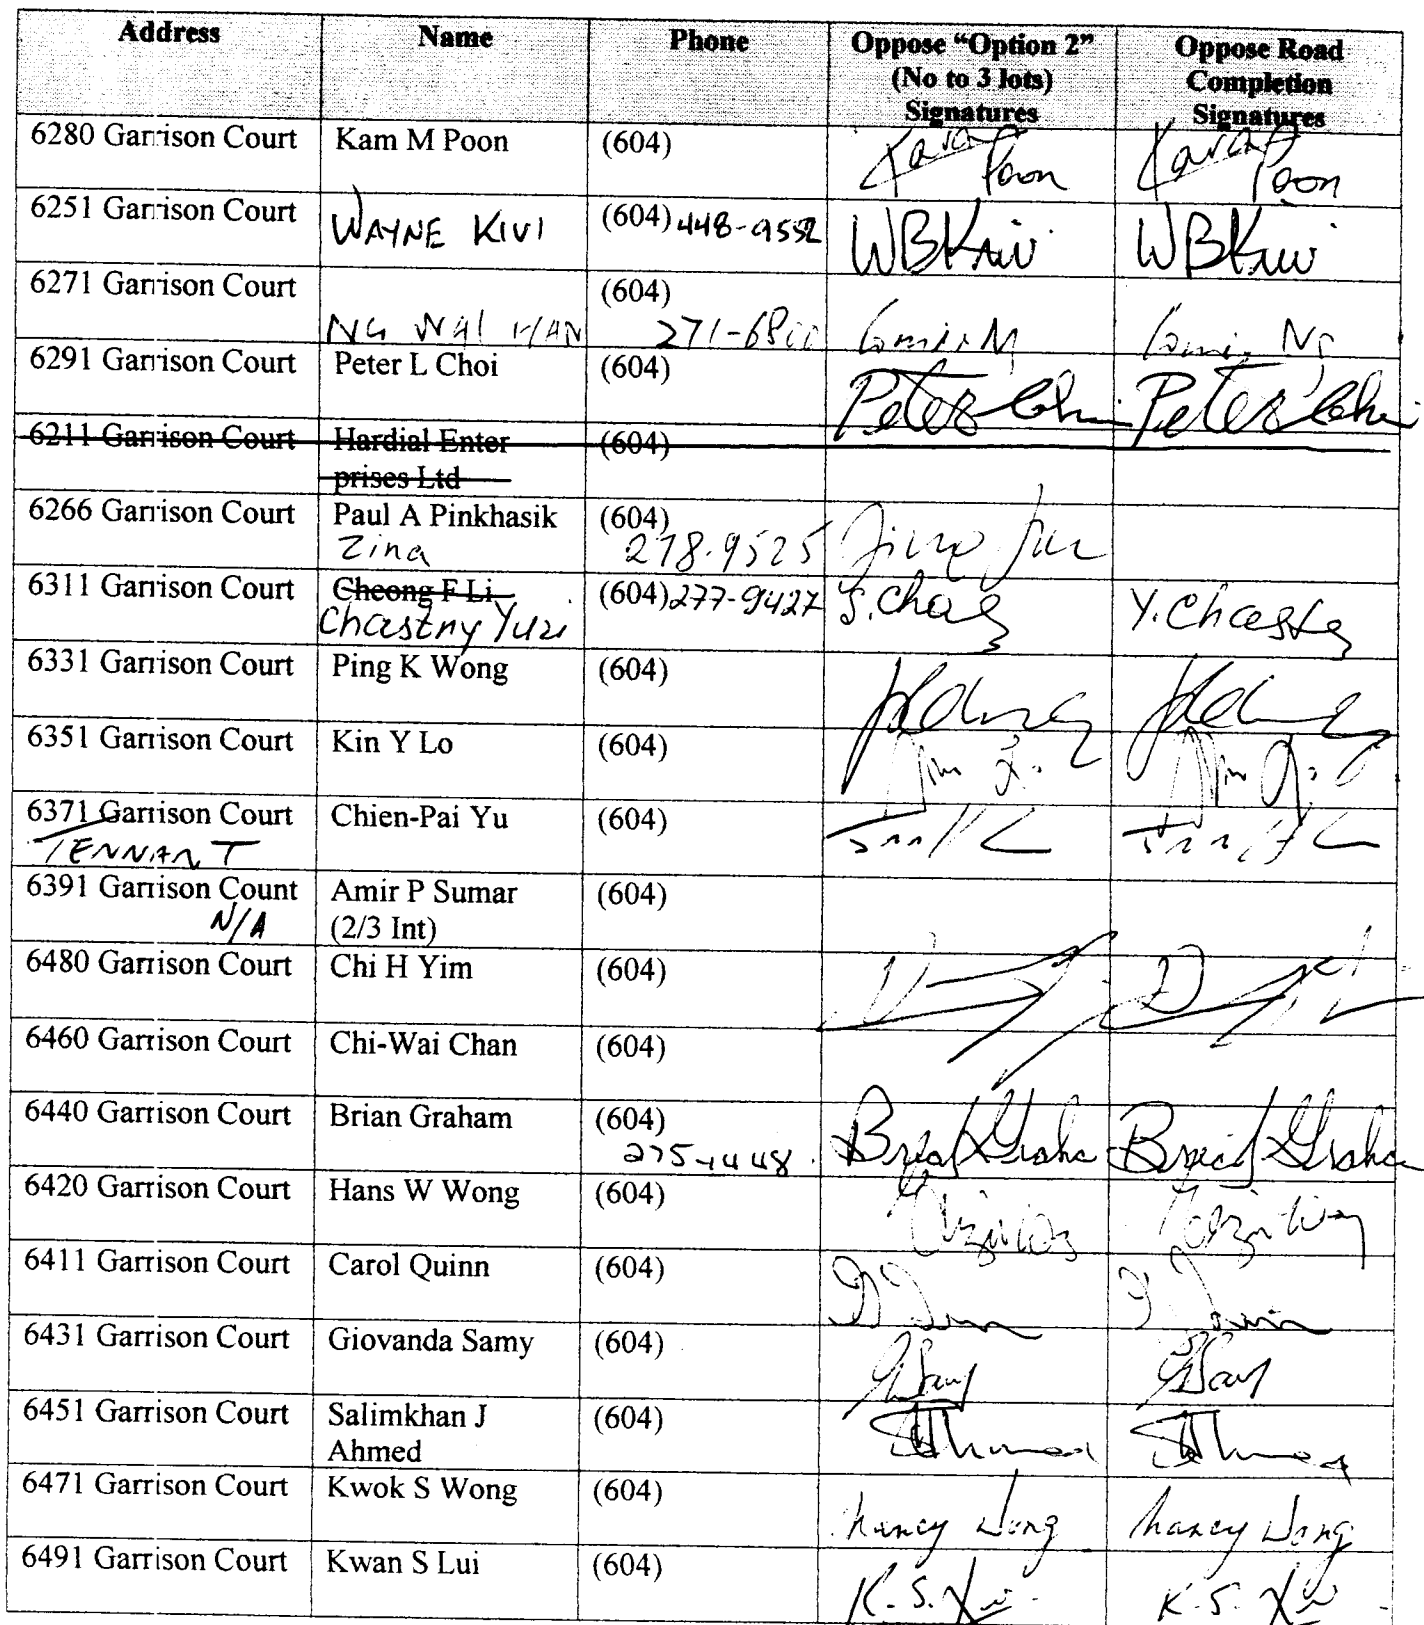 Address Name Phone Oppose “Option 2” (No to 3 lots) Signatures Oppose Road Completion Signatures
6280 Garrison Court Kam M Poon (604) Poon Poon
6251 Garrison Court WAYNE KIVI (604) 448-9552 WBKivi WBKivi
6271 Garrison Court NG WAI HAN (604) 271-68 Ng
6291 Garrison Court Peter L Choi (604) Peter Choi Peter Choi
6211 Garrison Court Hardial Enter (604)
prises Ltd
6266 Garrison Court Paul A Pinkhasik (604)
Zina 278-9525
6311 Garrison Court Cheong F Li (604) 277-9427 Y. Chast
Chastny Yuri
6331 Garrison Court Ping K Wong (604)
6351 Garrison Court Kin Y Lo (604)
6371 Garrison Court Chien-Pai Yu (604)
TENNANT
6391 Garrison Count Amir P Sumar (604)
N/A (2/3 Int)
6480 Garrison Court Chi H Yim (604)
6460 Garrison Court Chi-Wai Chan (604)
6440 Garrison Court Brian Graham (604) Brian Graham Brian Graham
275-1448
6420 Garrison Court Hans W Wong (604)
6411 Garrison Court Carol Quinn (604)
6431 Garrison Court Giovanda Samy (604) GSamy GSamy
6451 Garrison Court Salimkhan J (604) Ahmed Ahmed
Ahmed
6471 Garrison Court Kwok S Wong (604) Nancy Wong Nancy Wong
6491 Garrison Court Kwan S Lui (604) K.S. Lui K.S. Lui